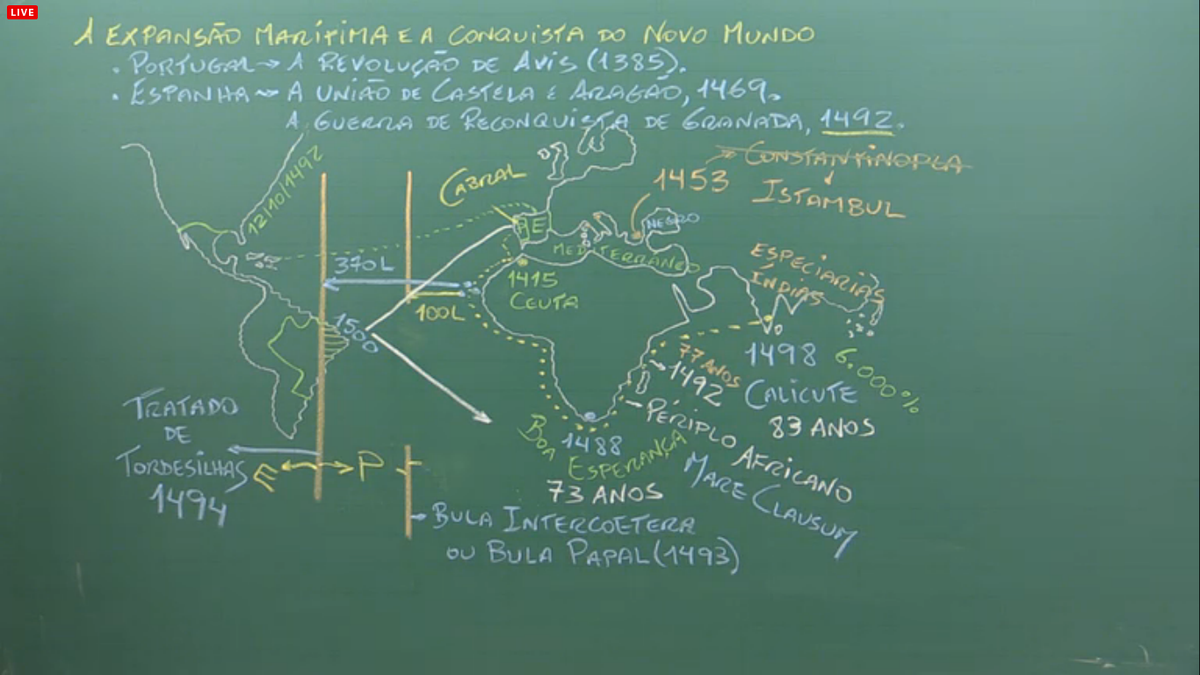 LIVE
A EXPANSÃO MARÍTIMA E A CONQUISTA DO NOVO MUNDO
• PORTUGAL → A REVOLUÇÃO DE AVIS (1385).
• ESPANHA → A UNIÃO DE CASTELA E ARAGÃO, 1469.
A GUERRA DE RECONQUISTA DE GRANADA, 1492.
12/10/1492
CABRAL
1453
CONSTANTINOPLA
ISTAMBUL
NEGRO
PE
MEDITERRÂNEO
370L
100L
1415
CEUTA
ESPECIARIAS
ÍNDIAS
1500
1498
CALICUTE
83 ANOS
6.000%
77 ANOS
1492
PÉRIPLO AFRICANO
MARE CLAUSUM
BOA
1488
ESPERANÇA
73 ANOS
TRATADO
DE
TORDESILHAS
1494
E ↔ P
BULA INTERCOETERA
OU BULA PAPAL (1493)